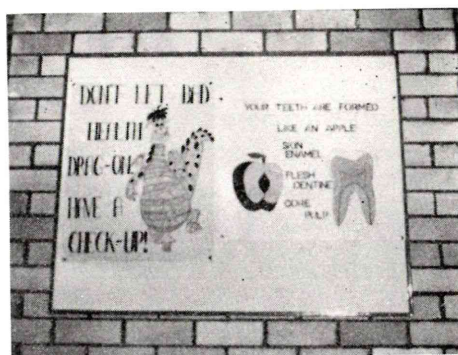 DON'T LET BAD
HEALTH
DRAG-ON.
HAVE A
CHECK-UP!
YOUR TEETH ARE FORMED
LIKE AN APPLE
SKIN
ENAMEL
FLESH
DENTINE
CORE
PULP